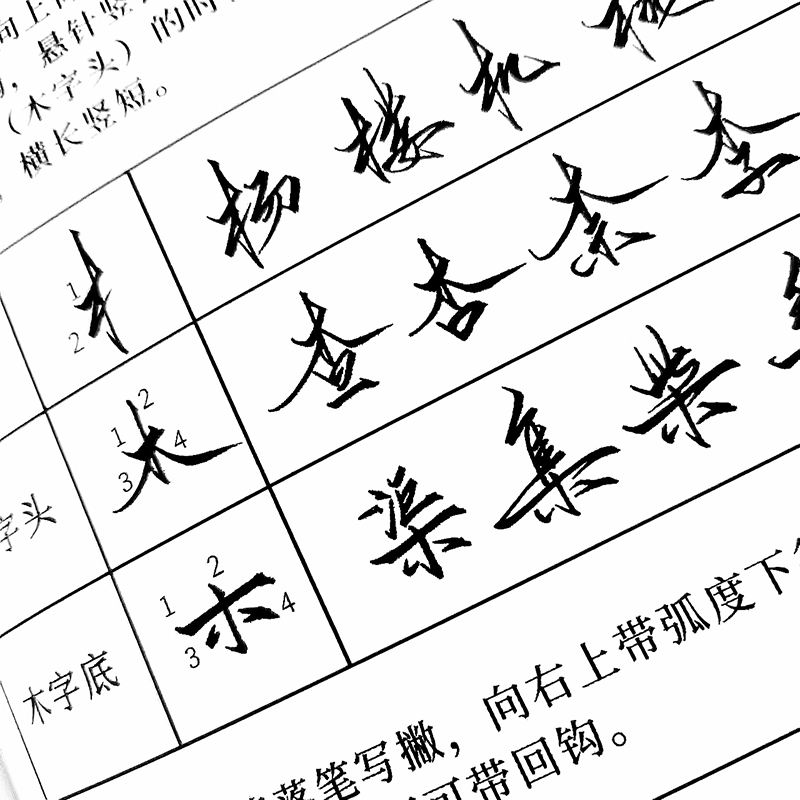 向上
，悬针竖
（木字头）的
，横长竖短。
1 2
杨 楼 机
字头
1 2 3 4
查 杏 柰 李
木字底
1 2 3 4
渠 集 柴
落笔写撇，向右上带弧度下
可带回钩。